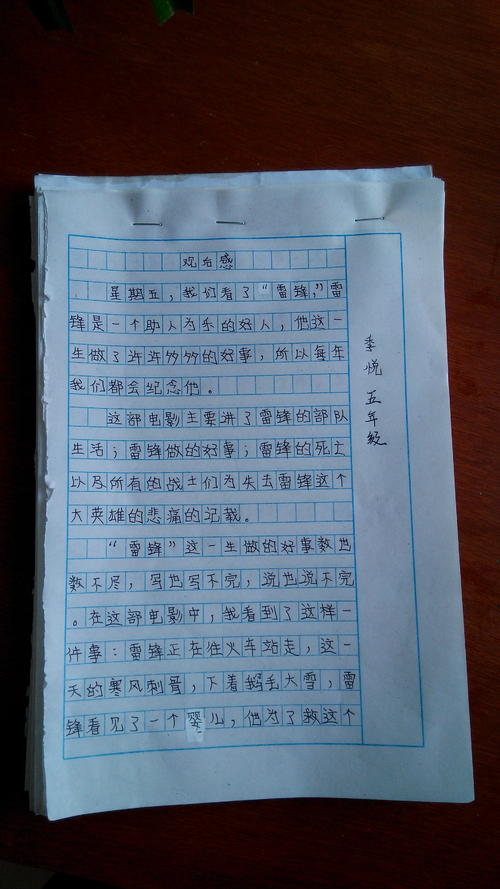 观后感
星期五，我们看了“雷锋，”雷
锋是一个助人为乐的好人，他这一
生做了许许多多的好事，所以每年
我们都会纪念他。
这部电影主要讲了雷锋的部队
生活；雷锋做的好事；雷锋的死亡
以及所有的战士们为失去雷锋这个
大英雄的悲痛的记载。
“雷锋”这一生做的好事数也
数不尽，写也写不完，说也说不完
。在这部电影中，我看到了这样一
件事：雷锋正在往火车站走，这一
天的寒风刺骨，下着鹅毛大雪，雷
锋看见了一个婴儿，他为了救这个
季悦 五年级